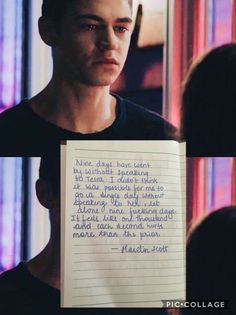 Nine days have went
by without speaking
to Tessa. I didn't think
it was possible for me to
go a single day without
speaking to her, let
alone nine fucking days.
It feels like one thousand
and each second hurts
more than the prior.
— Hardin Scott
PIC•COLLAGE